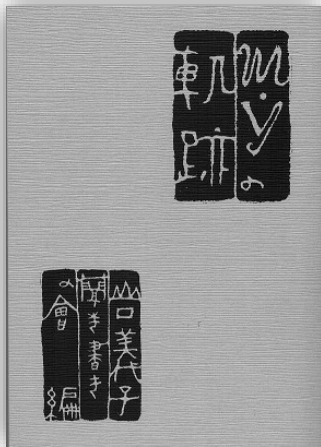 m.yの
軌跡
岩美代子
聞き書き
の會 編